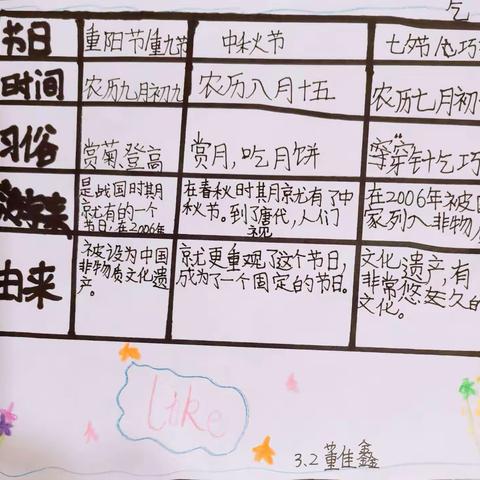 乞
节日 重阳节/重九节 中秋节 七夕节/乞巧
时间 农历九月初九 农历八月十五 农历七月初
习俗 赏菊,登高 赏月,吃月饼 穿针乞巧
是战国时期
就有的一个
节日,在2006年
在春秋时其月京尤有了中
秋节。到了唐代,人们
在2006年被
家列入非物
由来
被设为中国
非物质文化遗
产。
就更重观了这个节日,
视
成为了一个固定的节日。
文化遗产,有
非常悠久的
文化。
Like
3.2 董佳鑫